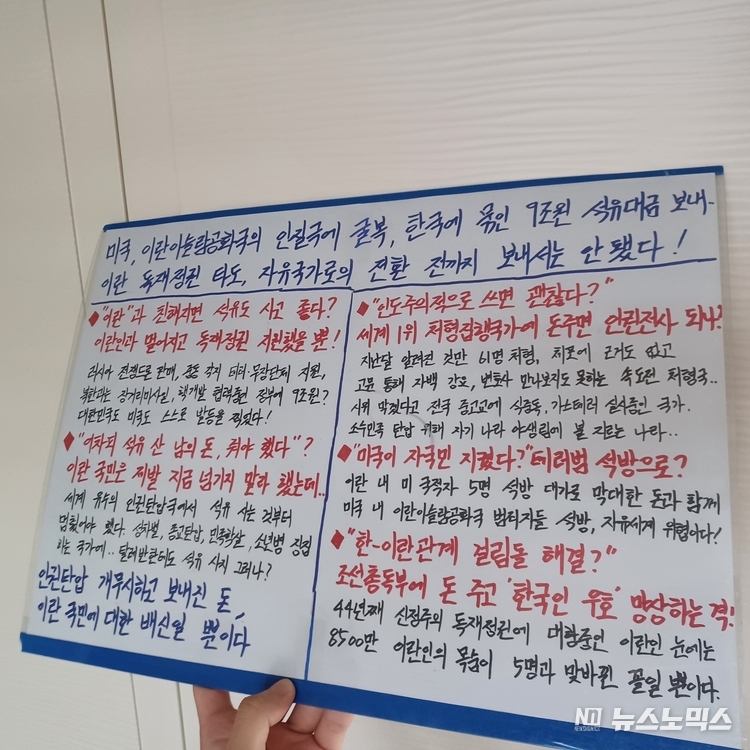 미국, 이란이슬람공화국의 인질극에 굴복, 한국에 묶인 9조원 석유대금 보내-
이란 독재정권 타도, 자유국가로의 전환 전까지 보내서는 안됐다!
◆"이란"과 친해지면 석유도 사고 좋다?
이란인과 멀어지고 독재정권 지원했을 뿐!
러시아 전쟁드론 판매, 중동 각지 테러·무장단체 지원,
북한과는 장거리미사일, 핵개발 협력중인 정부에 9조원?
대한민국도 미국도 스스로 발등을 찍었다!
◆"어차피 석유 산 남의 돈, 줘야 했다"?
이란 국민은 제발 지금 넘기지 말라 했는데..
세계 유수의 인권탄압국에서 석유 사는 것부터
멈췄어야 했다. 성차별, 종교탄압, 민족학살, 소년병 징집
하는 국가에.. 탈레반한테도 석유 사지 그러나?
인권탄압 개무시하고 보내진 돈,
이란 국민에 대한 배신일 뿐이다
◆"인도주의적으로 쓰면 괜찮다?"
세계 1위 처형집행국가에 돈주면 인권전사 되나?
지난달 알려진 것만 61명 처형, 체포에 근거도 없고
고문 통해 자백 강요, 변호사 만나보지도 못하는 속도전 처형국..
시위 막겠다고 전국 중고교에 식중독, 가스테러 실시중인 국가.
소수민족 탄압 위해 자기 나라 야생림에 불 지르는 나라..
◆"미국이 자국민 지켰다?" 테러범 석방으로?
이란 내 미 국적자 5명 석방 대가로 막대한 돈과 함께
미국 내 이란이슬람공화국 범죄자들 석방, 자유세계 위협이다!
◆"한-이란관계 걸림돌 해결?"
조선총독부에 돈 주고 '한국인 우호' 망상하는 격!
44년째 신정주의 독재정권에 대항중인 이란인 눈에는
8500만 이란인의 목숨이 5명과 맞바뀐 꼴일 뿐이다.
뉴스노믹스